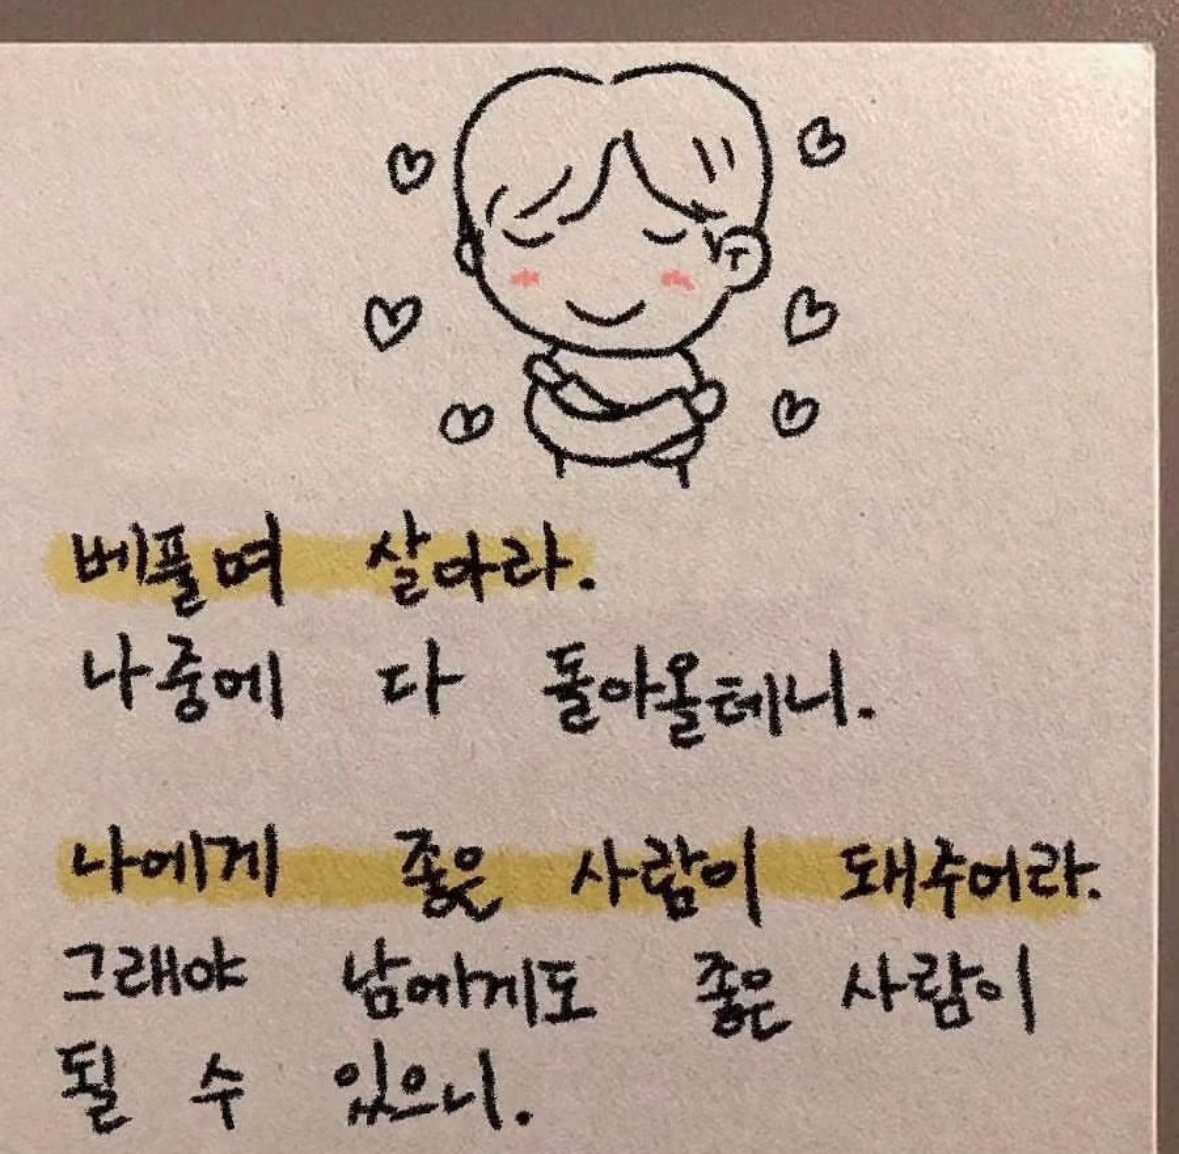 베풀며 살아라.
나중에 다 돌아올테니.
나에게 좋은 사람이 돼주어라.
그래야 남에게도 좋은 사람이
될 수 있으니.